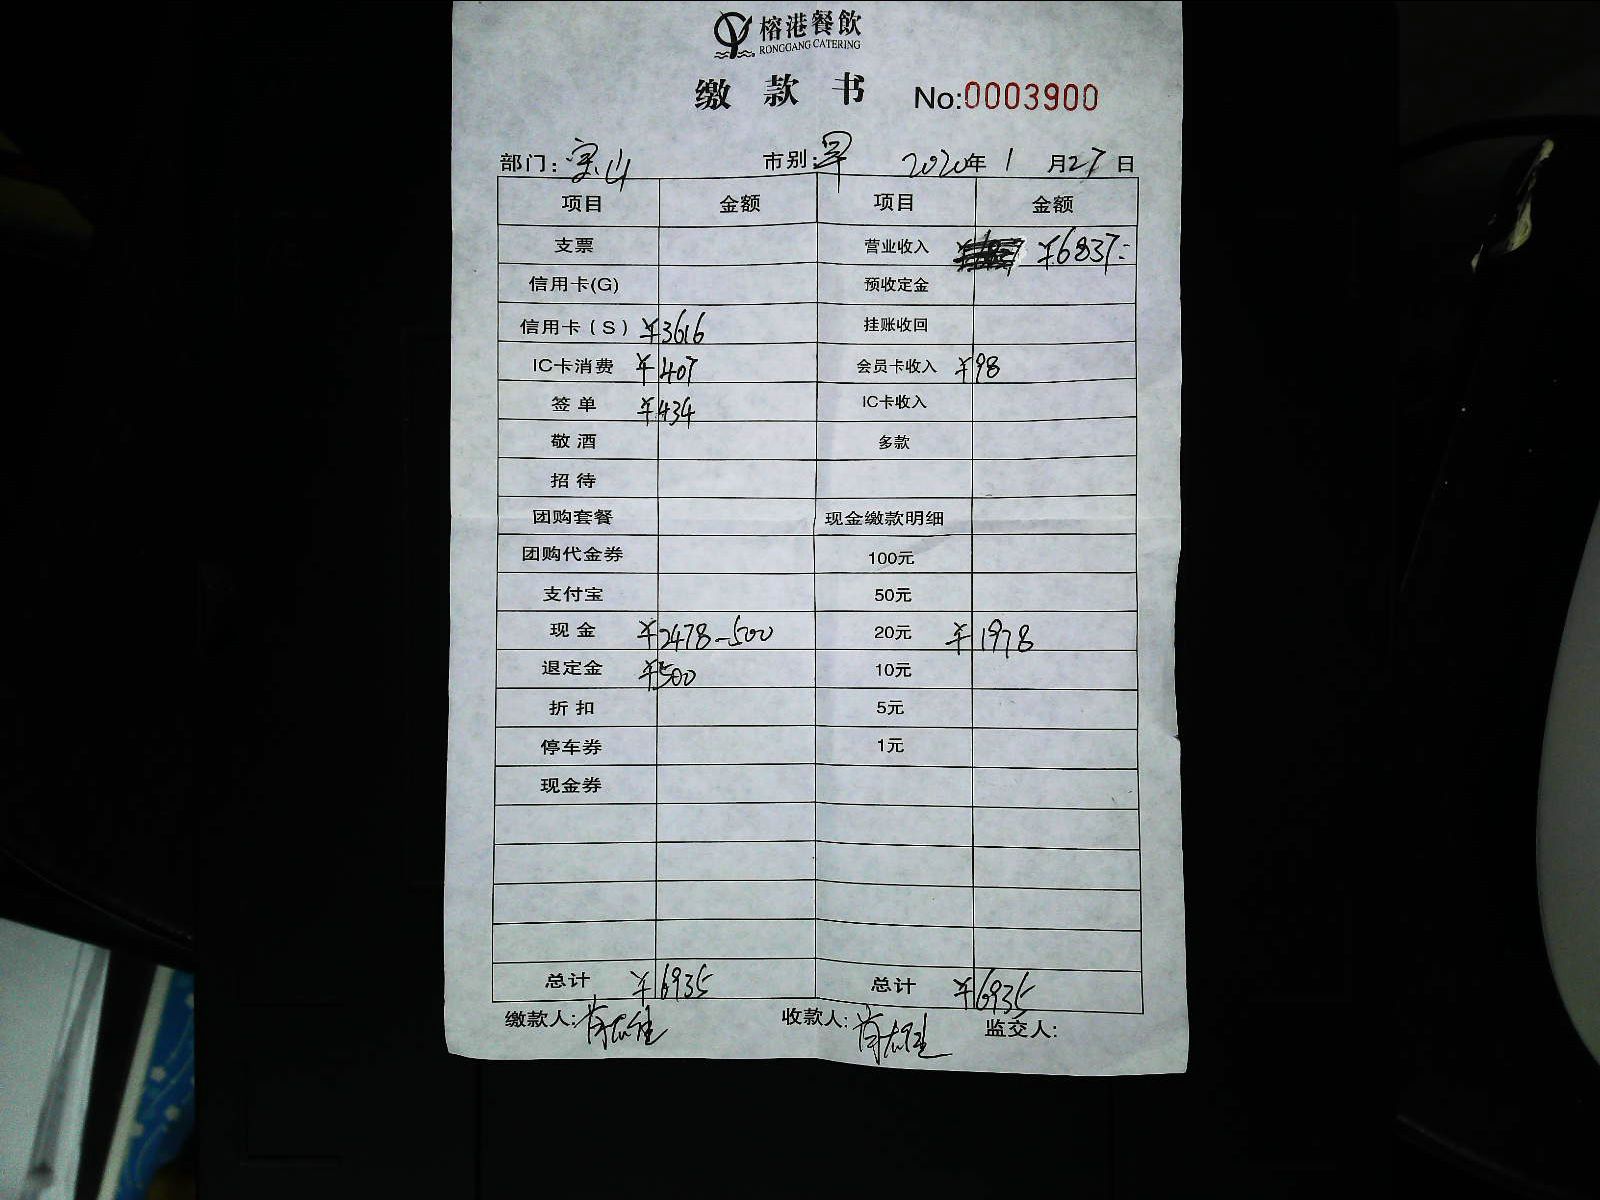 榕港餐飲
RONGGANG CATERING
缴款书 No:0003900
部门:宝山 市别:早 2020年1月27日
项目 金额 项目 金额
支票 营业收入 ¥6837:
信用卡(G) 预收定金
信用卡(S) ¥3616 挂账收回
IC卡消费 ¥407 会员卡收入 ¥98
签单 ¥434 IC卡收入
敬酒 多款
招待
团购套餐 现金缴款明细
团购代金券 100元
支付宝 50元
现金 ¥2478-500 20元 ¥1978
退定金 ¥500 10元
折扣 5元
停车券 1元
现金券
总计 ¥6935 总计 ¥6935
缴款人: 收款人: 监交人: